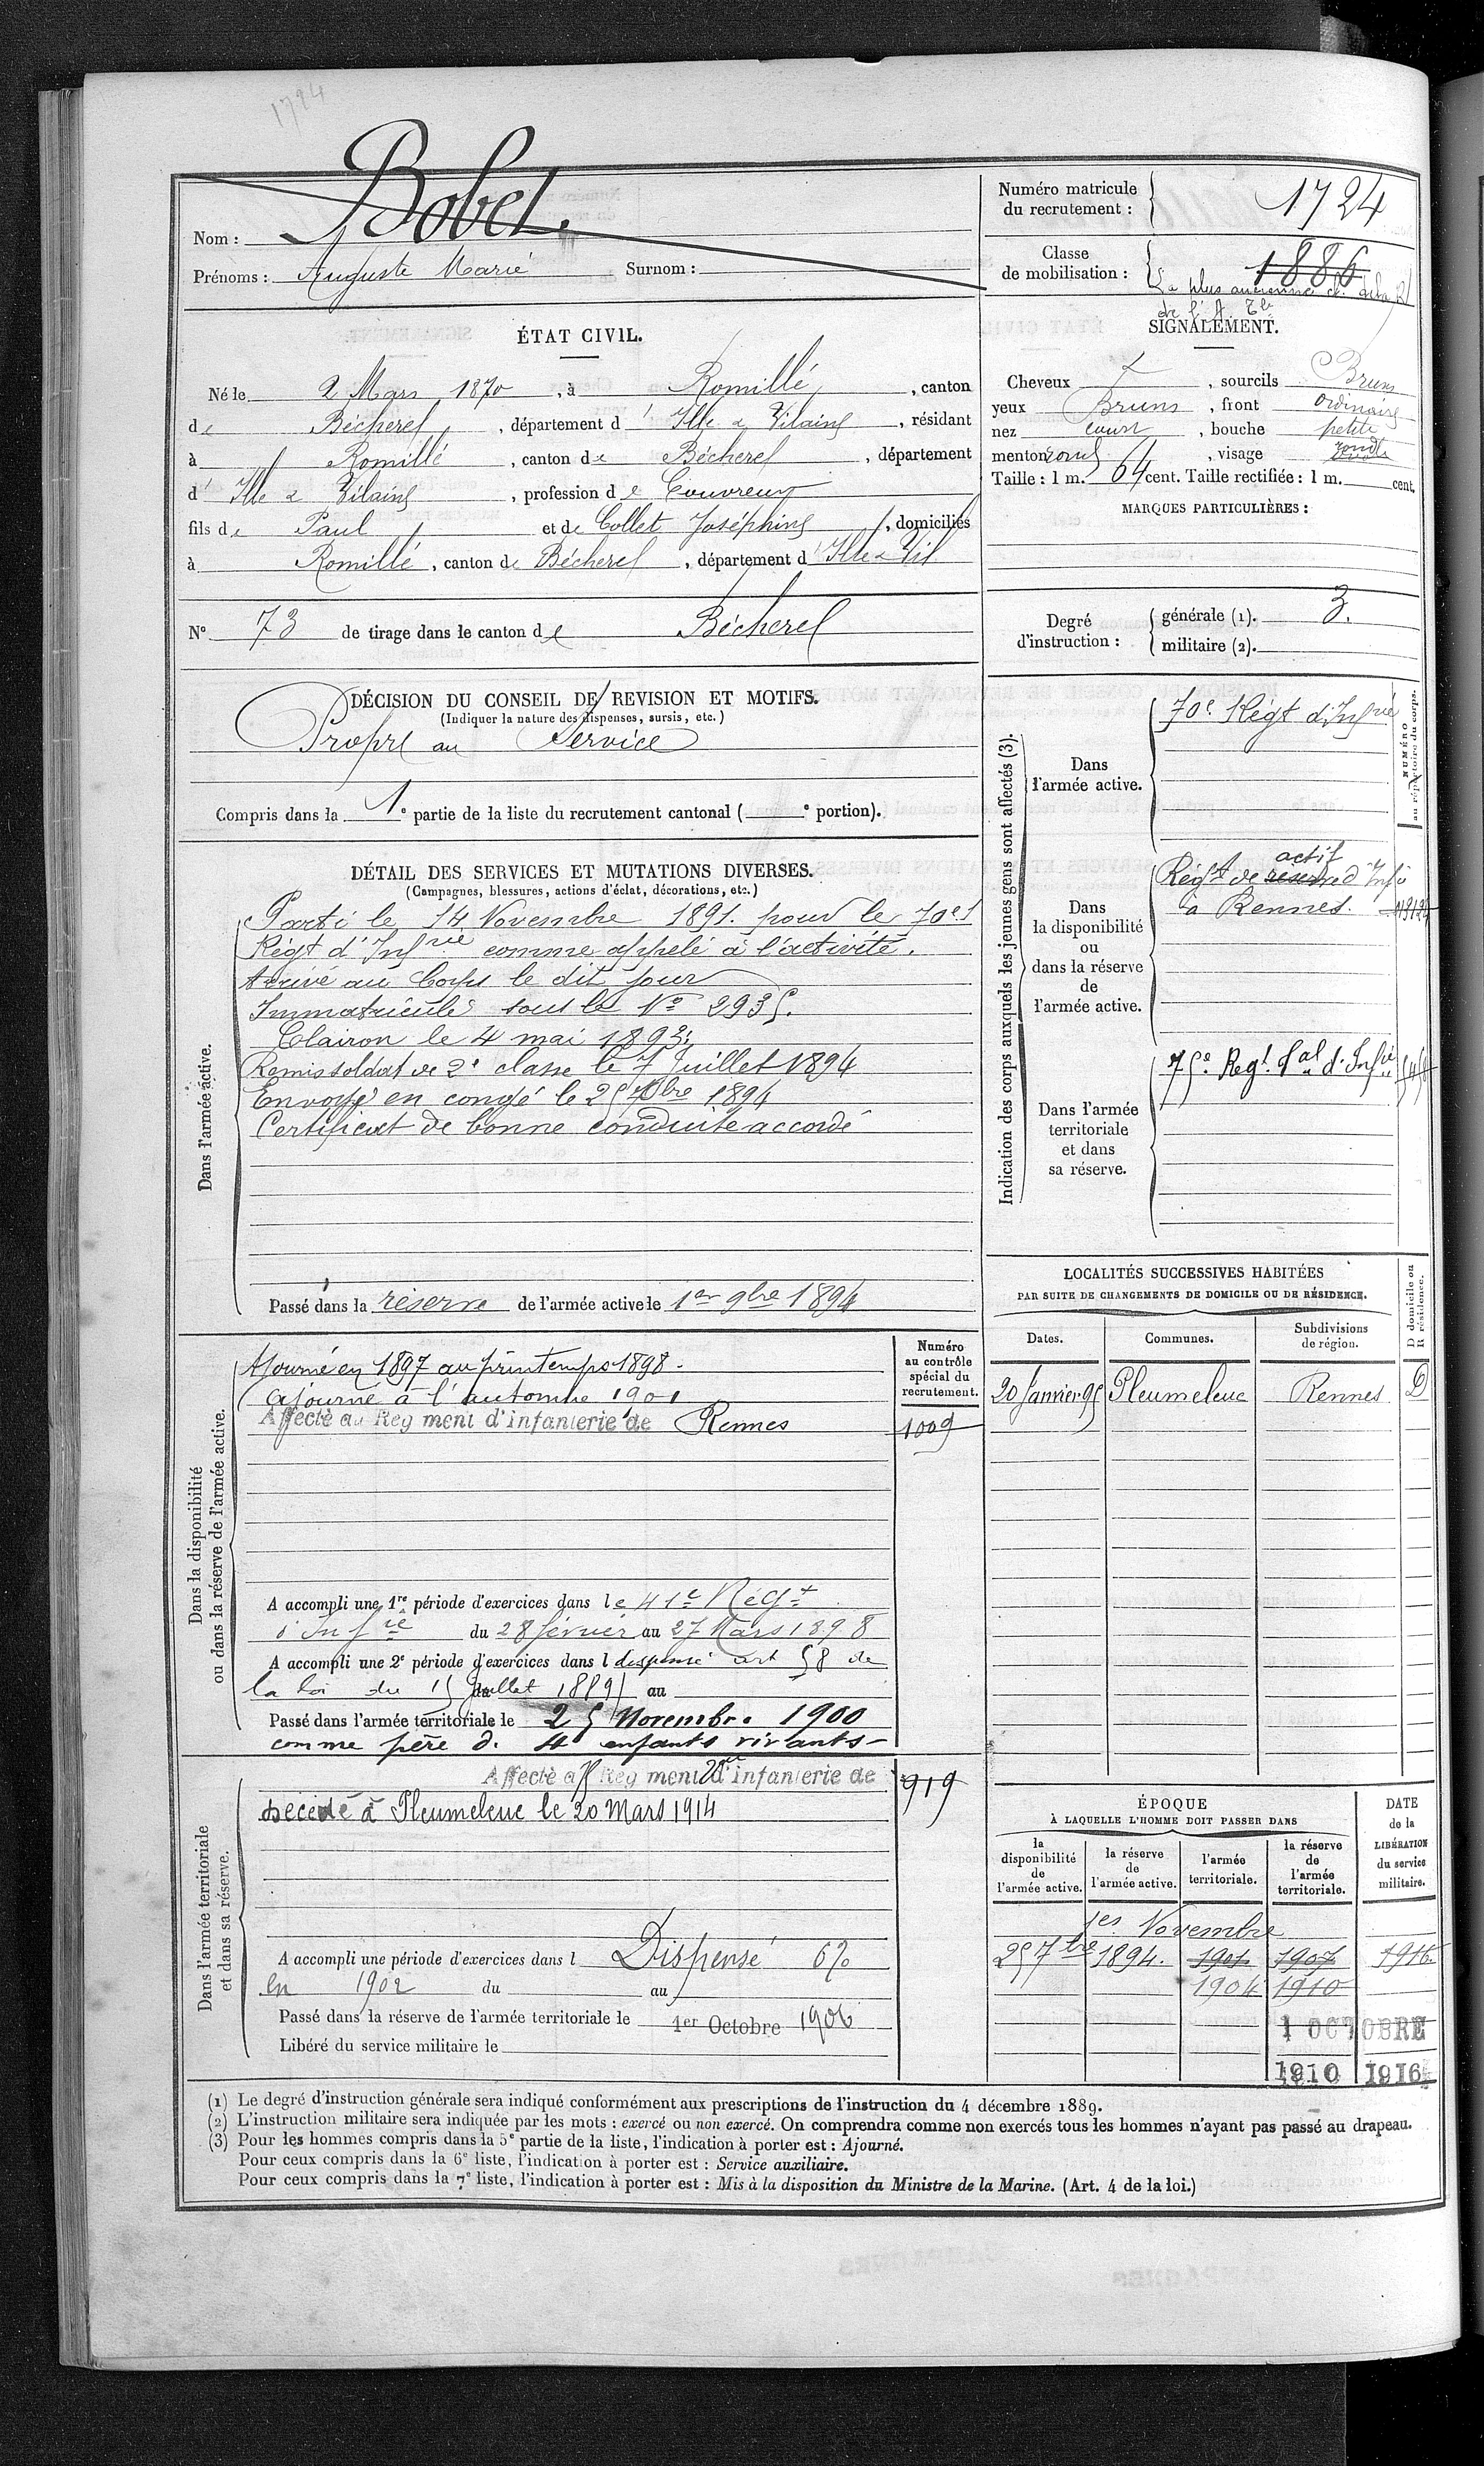 1724
Nom : Bobet.
Prénoms : Auguste Marie Surnom :
Numéro matricule du recrutement : 1724
Classe de mobilisation : 1886
La plus ancienne cl. de la R/
de l'A. Tle
ÉTAT CIVIL.
Né le 2 Mars 1870, à Romillé, canton
de Bécherel, département d'Ille & Vilaine, résidant
à Romillé, canton de Bécherel, département
d'Ille & Vilaine, profession de Couvreur
fils de Paul et de Collet Joséphine, domiciliés
à Romillé, canton de Bécherel, département d'Ille & Vil
N° 73 de tirage dans le canton de Bécherel
SIGNALEMENT.
Cheveux, sourcils Bruns
yeux Bruns, front ordinaire
nez court, bouche petite
menton rond, visage rond
Taille : 1 m. 64 cent. Taille rectifiée : 1 m. cent.
MARQUES PARTICULIÈRES :
Degré d'instruction :
générale (1). 3.
militaire (2).
DÉCISION DU CONSEIL DE REVISION ET MOTIFS.
(Indiquer la nature des dispenses, sursis, etc.)
Propre au Service
Compris dans la 1e partie de la liste du recrutement cantonal ( e portion).
DÉTAIL DES SERVICES ET MUTATIONS DIVERSES.
(Campagnes, blessures, actions d'éclat, décorations, etc.)
Dans l'armée active.
Parti le 14 Novembre 1891. pour le 70e
Régt d'Infrie comme appelé à l'activité.
Arrivé au Corps le dit jour
Immatriculé sous le No 2935.
Clairon le 4 mai 1893.
Remis soldat de 2e classe le 7 Juillet 1894
Envoyé en congé le 25 7bre 1894
Certificat de bonne conduite accordé
Passé dans la réserve de l'armée active le 1er 9bre 1894
Indication des corps auxquels les jeunes gens sont affectés (3).
NUMÉRO au répertoire du corps.
Dans l'armée active.
70e Régt d'Infrie
Dans la disponibilité ou dans la réserve de l'armée active.
actif
Régt de réserve d'Infie
à Rennes.
Dans l'armée territoriale et dans sa réserve.
75e Regt Tal d'Infie
LOCALITÉS SUCCESSIVES HABITÉES
PAR SUITE DE CHANGEMENTS DE DOMICILE OU DE RÉSIDENCE.
Dates. Communes. Subdivisions de région. D domicile ou R résidence.
20 Janvier 95 Pleumeleuc Rennes D
Dans la disponibilité ou dans la réserve de l'armée active.
Numéro au contrôle spécial du recrutement.
Ajourné en 1897 au printemps 1898.
Ajourné à l'automne 1901
Affecté au Régiment d'infanterie de Rennes 1009
A accompli une 1re période d'exercices dans le 41e Régt
d'Infie du 28 février au 27 Mars 1898
A accompli une 2e période d'exercices dans l dispensé art 58 de
la loi du 15 Juillet 1889 au
Passé dans l'armée territoriale le 25 Novembre 1900
comme père de 4 enfants vivants
Dans l'armée territoriale et dans sa réserve.
Affecté au Régiment d'infanterie de 919
Décédé à Pleumeleuc le 20 Mars 1914
A accompli une période d'exercices dans l Dispensé 6%
en 1902 du au
Passé dans la réserve de l'armée territoriale le 1er Octobre 1906
Libéré du service militaire le
ÉPOQUE
À LAQUELLE L'HOMME DOIT PASSER DANS
DATE de la LIBÉRATION du service militaire.
la disponibilité de l'armée active. la réserve de l'armée active. l'armée territoriale. la réserve de l'armée territoriale.
1er Novembre
25 7bre 1894. 1901 1907 1916.
1904 1910
1 OCTOBRE
1910 1916
(1) Le degré d'instruction générale sera indiqué conformément aux prescriptions de l'instruction du 4 décembre 1889.
(2) L'instruction militaire sera indiquée par les mots : exercé ou non exercé. On comprendra comme non exercés tous les hommes n'ayant pas passé au drapeau.
(3) Pour les hommes compris dans la 5e partie de la liste, l'indication à porter est : Ajourné.
Pour ceux compris dans la 6e liste, l'indication à porter est : Service auxiliaire.
Pour ceux compris dans la 7e liste, l'indication à porter est : Mis à la disposition du Ministre de la Marine. (Art. 4 de la loi.)